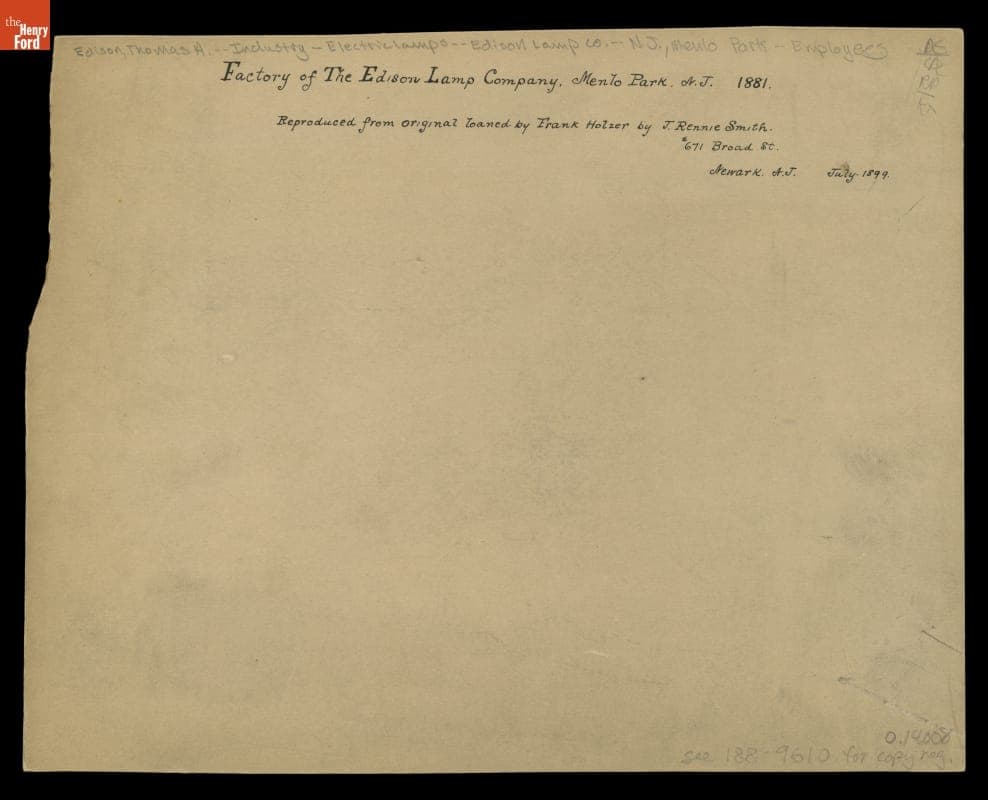 the
Henry
Ford
Edison, Thomas A. -- Industry - Electric lamps -- Edison Lamp Co. - N.J., Menlo Park - Employees
Factory of The Edison Lamp Company, Menlo Park. N.J. 1881.
Reproduced from original loaned by Frank Holzer by J. Rennie Smith.
#671 Broad St.
Newark. N.J. July-1899.
see 188-9610 for copy neg.